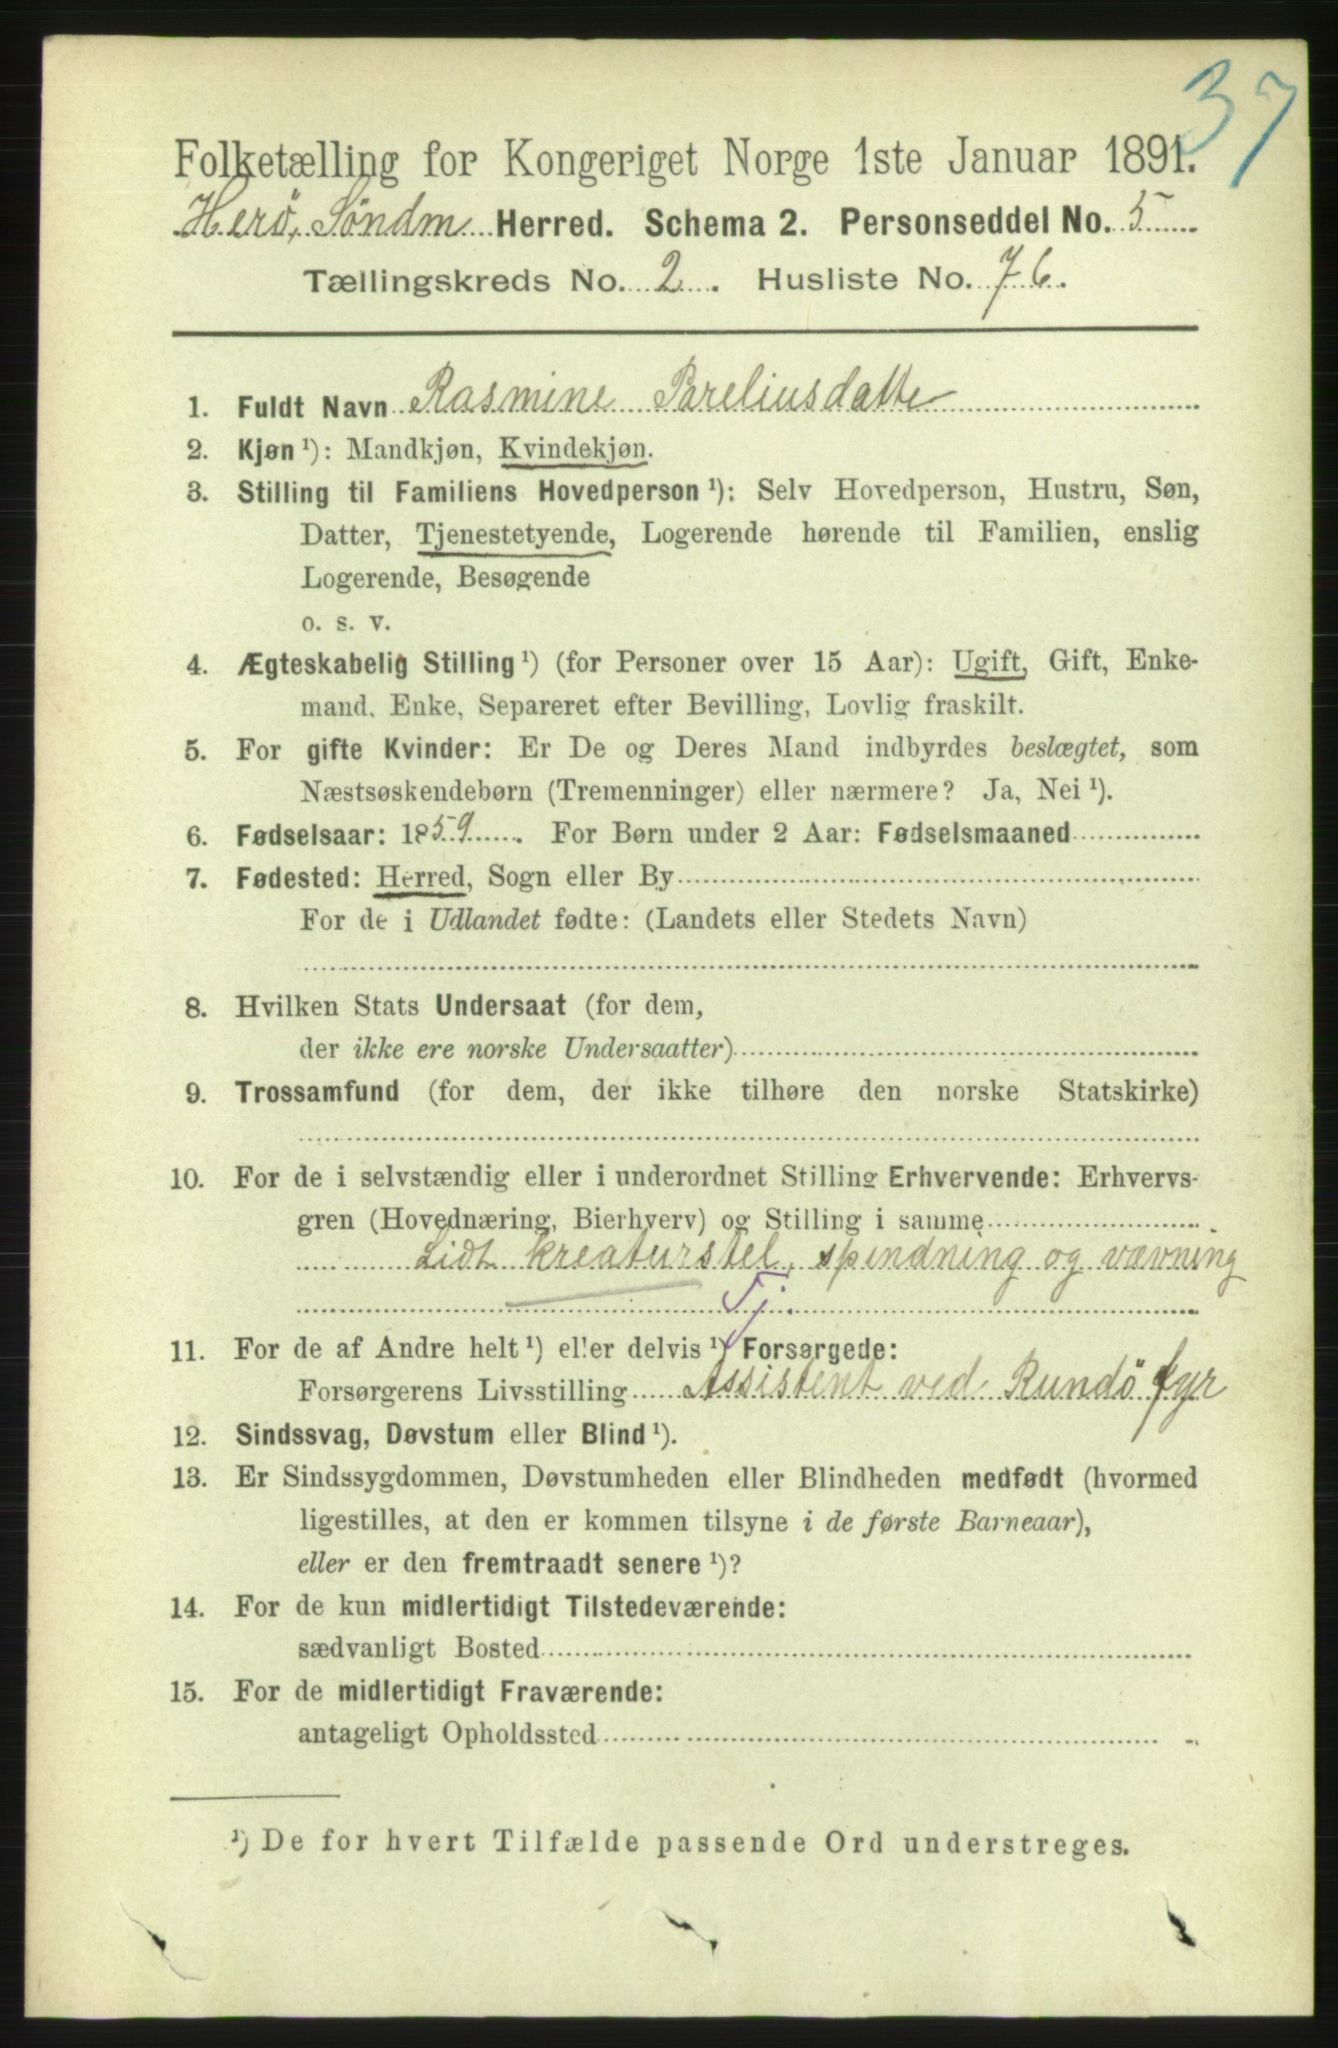 37
Folketælling for Kongeriget Norge 1ste Januar 1891.
Herö, Söndm Herred. Schema 2. Personseddel No. 5
Tællingskreds No. 2. Husliste No. 76.
1. Fuldt Navn Rasmine Pareliusdatte
2. Kjøn ¹): Mandkjøn, Kvindekjøn.
3. Stilling til Familiens Hovedperson ¹): Selv Hovedperson, Hustru, Søn,
Datter, Tjenestetyende, Logerende hørende til Familien, enslig
Logerende, Besøgende
o. s. v.
4. Ægteskabelig Stilling ¹) (for Personer over 15 Aar): Ugift, Gift, Enke-
mand, Enke, Separeret efter Bevilling, Lovlig fraskilt.
5. For gifte Kvinder: Er De og Deres Mand indbyrdes beslægtet, som
Næstsøskendebørn (Tremenninger) eller nærmere? Ja, Nei ¹).
6. Fødselsaar: 1859. For Børn under 2 Aar: Fødselsmaaned
7. Fødested: Herred, Sogn eller By
For de i Udlandet fødte: (Landets eller Stedets Navn)
8. Hvilken Stats Undersaat (for dem,
der ikke ere norske Undersaatter)
9. Trossamfund (for dem, der ikke tilhøre den norske Statskirke)
10. For de i selvstændig eller i underordnet Stilling Erhvervende: Erhvervs-
gren (Hovednæring, Bierhverv) og Stilling i samme
Lidt kreaturstel, spindning og vævning
Tj.
11. For de af Andre helt ¹) eller delvis ¹) Forsørgede:
Forsørgerens Livsstilling Assistent ved Rundö fyr
12. Sindssvag, Døvstum eller Blind ¹).
13. Er Sindssygdommen, Døvstumheden eller Blindheden medfødt (hvormed
ligestilles, at den er kommen tilsyne i de første Barneaar),
eller er den fremtraadt senere ¹)?
14. For de kun midlertidigt Tilstedeværende:
sædvanligt Bosted
15. For de midlertidigt Fraværende:
antageligt Opholdssted
¹) De for hvert Tilfælde passende Ord understreges.